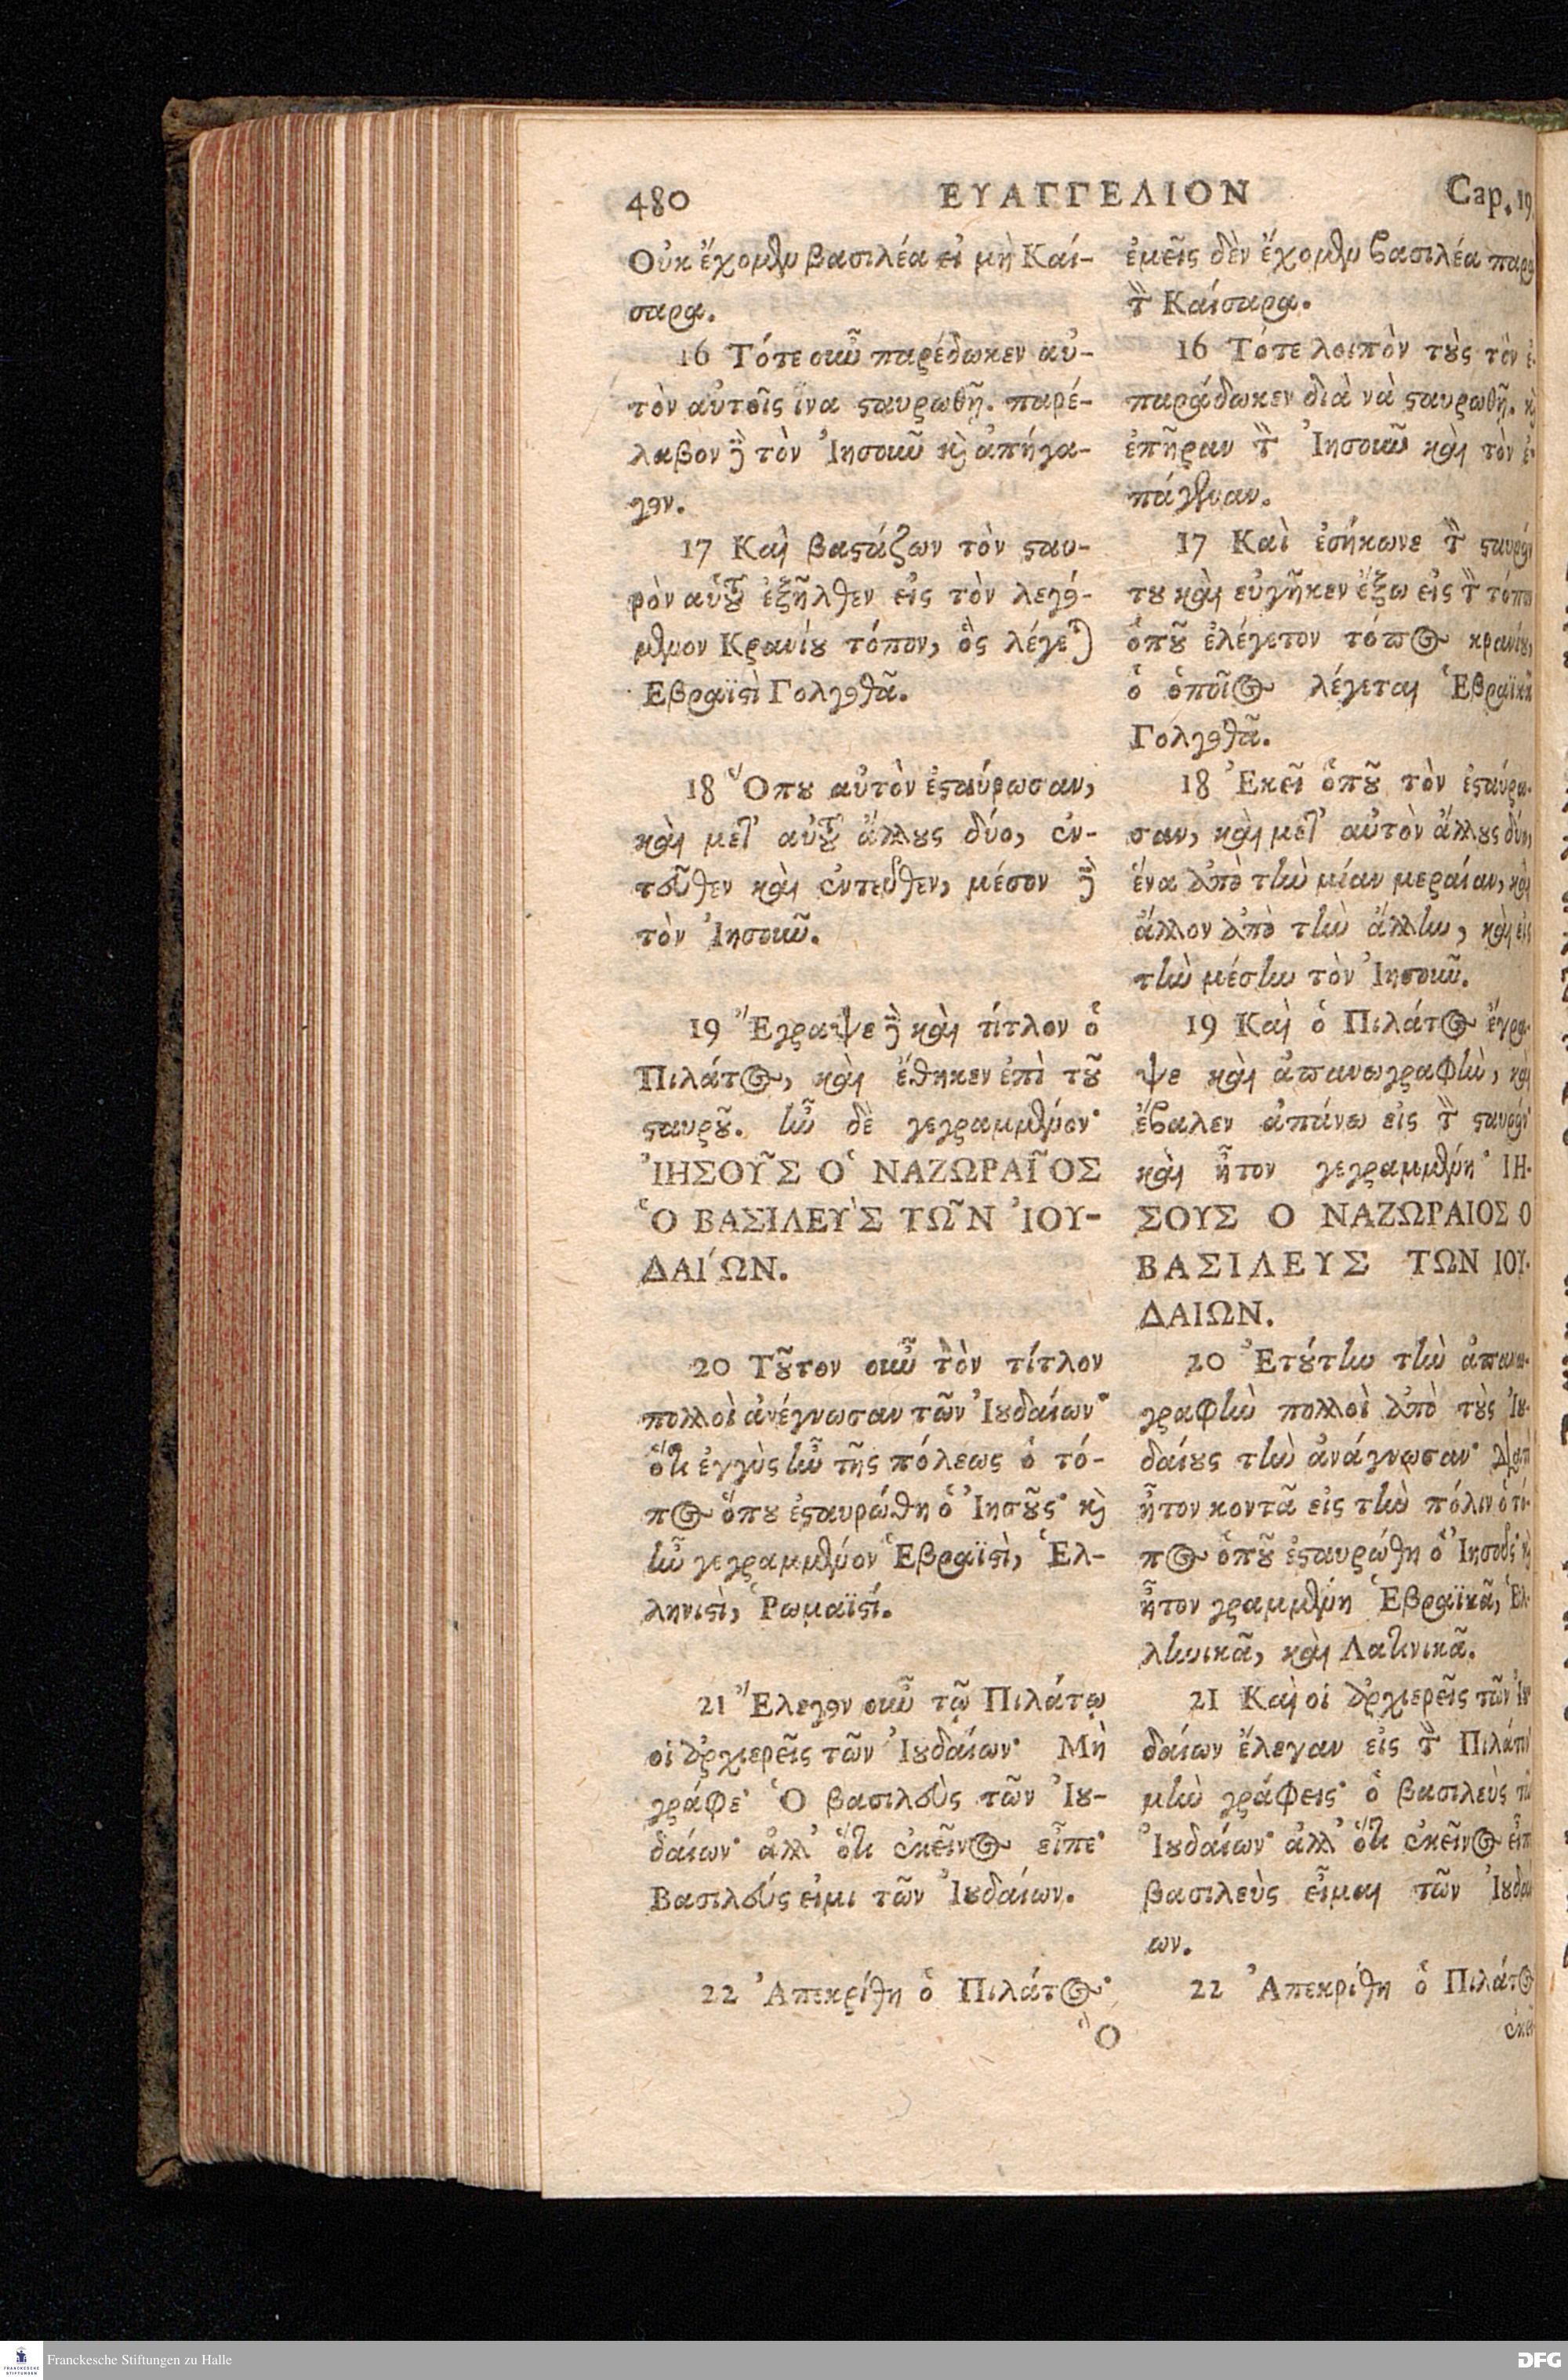 480 ΕΥΑΓΓΕΛΙΟΝ Cap. 19
Οὐκ ἔχομεν βασιλέα εἰ μὴ Καί-
σαρα.
16 Τότε οὖν παρέδωκεν αὐ-
τὸν αὐτοῖς ἵνα ϛαυρωθῇ. παρέ-
λαβον δὲ τὸν Ἰησοῦν κὶ ἀπήγα-
γον.
17 Καὶ βαϛάζων τὸν ϛαυ-
ρὸν αὑτȣ͂ ἐξῆλθεν εἰς τὸν λεγό-
μενον Κρανίȣ τόπον, ὃς λέγεται
Εβραϊϛὶ Γολγοθᾶ.
18 Ὅπȣ αὐτὸν ἐϛαύρωσαν,
καὶ μετ' αὐτȣ͂ ἄλλȣς δύο, ἐν-
τεῦθεν καὶ ἐντεῦθεν, μέσον δὲ
τὸν Ἰησοῦν.
19 Ἔγραψε δὲ καὶ τίτλον ὁ
Πιλάτος, καὶ ἔθηκεν ἐπὶ τȣ͂
ϛαυρȣ͂. ἦν δὲ γεγραμμένον·
ἸΗΣΟΥ͂Σ Ὁ ΝΑΖΩΡΑΙ͂ΟΣ
Ὁ ΒΑΣΙΛΕῪΣ ΤΩ͂Ν ἸΟΥ-
ΔΑΊΩΝ.
20 Τȣ͂τον οὖν τὸν τίτλον
πολλοὶ ἀνέγνωσαν τῶν Ἰȣδαίων·
ὅτι ἐγγὺς ἦν τῆς πόλεως ὁ τό-
πος ὅπȣ ἐϛαυρώθη ὁ Ἰησȣ͂ς· κὶ
ἦν γεγραμμένον Ἑβραϊϛὶ, Ἑλ-
ληνιϛὶ, Ῥωμαϊϛί.
21 Ἔλεγον οὖν τῷ Πιλάτῳ
οἱ ἀρχιερεῖς τῶν Ἰȣδαίων· Μὴ
γράφε· Ὁ βασιλεὺς τῶν Ἰȣ-
δαίων· ἀλλ' ὅτι ἐκεῖνος εἶπε·
Βασιλεύς εἰμι τῶν Ἰȣδαίων.
22 Ἀπεκρίθη ὁ Πιλάτος·
Ὃ
ἐμεῖς δὲν ἔχομεν βασιλέα παρὰ
τὸν Καίσαρα.
16 Τότε λοιπὸν τȣ̀ς τὸν ἐ-
παράδωκεν διὰ νὰ ϛαυρωθῇ. κὶ
ἐπῆραν τὸν Ἰησοῦν καὶ τὸν ἐ-
πάγεναν.
17 Καὶ ἐσήκωνε τὸν ϛαυρόν
τȣ καὶ εὐγῆκεν ἔξω εἰς τὸν τόπον
ὁπȣ͂ ἐλέγετον τόπος κρανίȣ,
ὁ ὁποῖος λέγεται Ἑβραϊκὰ
Γολγοθᾶ.
18 Ἐκεῖ ὁπȣ͂ τὸν ἐϛαύρω-
σαν, καὶ μετ' αὐτὸν ἄλλȣς δύο,
ἕνα ἀπὸ τὴν μίαν μεραίαν, καὶ
ἄλλον ἀπὸ τὴν ἄλλην, καὶ εἰς
τὴν μέσην τὸν Ἰησοῦν.
19 Καὶ ὁ Πιλάτος ἔγρα-
ψε καὶ ἀπανωγραφὴν, καὶ
ἔβαλεν ἀπάνω εἰς τὸν ϛαυρόν·
καὶ ἦτον γεγραμμένη· ΙΗ-
ΣΟΥΣ Ο ΝΑΖΩΡΑΙΟΣ Ο
ΒΑΣΙΛΕΥΣ ΤΩΝ ΙΟΥ-
ΔΑΙΩΝ.
20 Ἐτȣ́την τὴν ἀπανω-
γραφὴν πολλοὶ ἀπὸ τȣ̀ς Ἰȣ-
δαίȣς τὴν ἀνάγνωσαν· διατὶ
ἦτον κοντᾶ εἰς τὴν πόλιν ὁ τό-
πος ὁπȣ͂ ἐϛαυρώθη ὁ Ἰησοῦς· κὶ
ἦτον γραμμένη Ἑβραϊκᾶ, Ἑλ-
ληνικᾶ, καὶ Λατινικᾶ.
21 Καὶ οἱ ἀρχιερεῖς τῶν Ἰȣ-
δαίων ἔλεγαν εἰς τὸν Πιλάτον·
μὴν γράφεις· ὁ βασιλεὺς τῶν
Ἰȣδαίων· ἀλλ' ὅτι ἐκεῖνος εἶπε
βασιλεὺς εἶμαι τῶν Ἰȣδαί-
ων.
22 Ἀπεκρίθη ὁ Πιλάτος
Franckesche Stiftungen zu Halle
FRANCKESCHE STIFTUNGEN
DFG